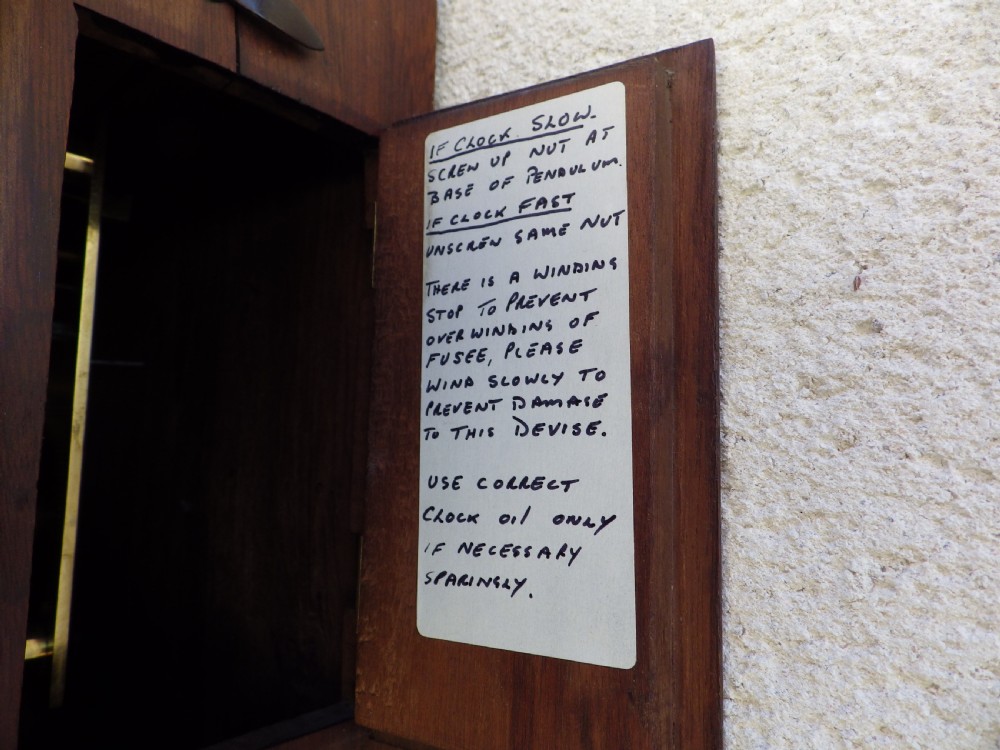 IF CLOCK SLOW.
SCREW UP NUT AT
BASE OF PENDULUM.
IF CLOCK FAST
UNSCREW SAME NUT
THERE IS A WINDING
STOP TO PREVENT
OVERWINDING OF
FUSEE, PLEASE
WIND SLOWLY TO
PREVENT DAMAGE
TO THIS DEVISE.
USE CORRECT
CLOCK OIL ONLY
IF NECESSARY
SPARINGLY.